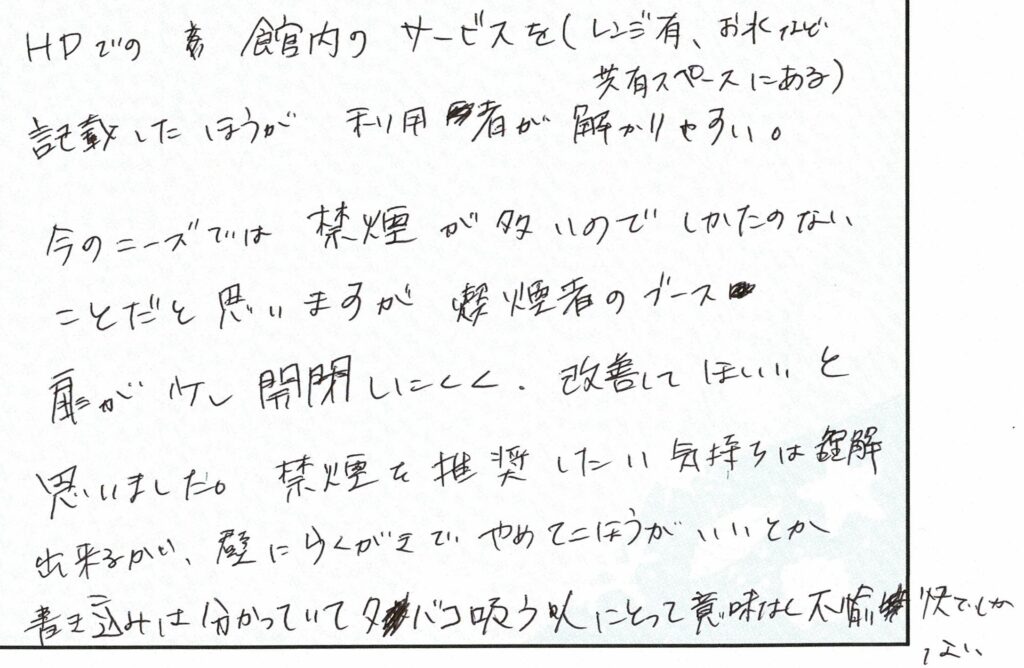 HPでの 館内の サービスを(レンジ有、お水など
共有スペースにある)
記載したほうが 利用者が 解かりやすい。
今のニーズでは 禁煙が多いので しかたのない
ことだと思いますが 喫煙者のブース
扉が少し開閉しにくく、改善してほしいと
思いました。禁煙を推奨したい気持ちは理解
出来るが、壁にらくがきで やめてこほうがいいとか
書き込みは分かっていてタバコ吸う人にとって意味なく不愉快でしか
ない